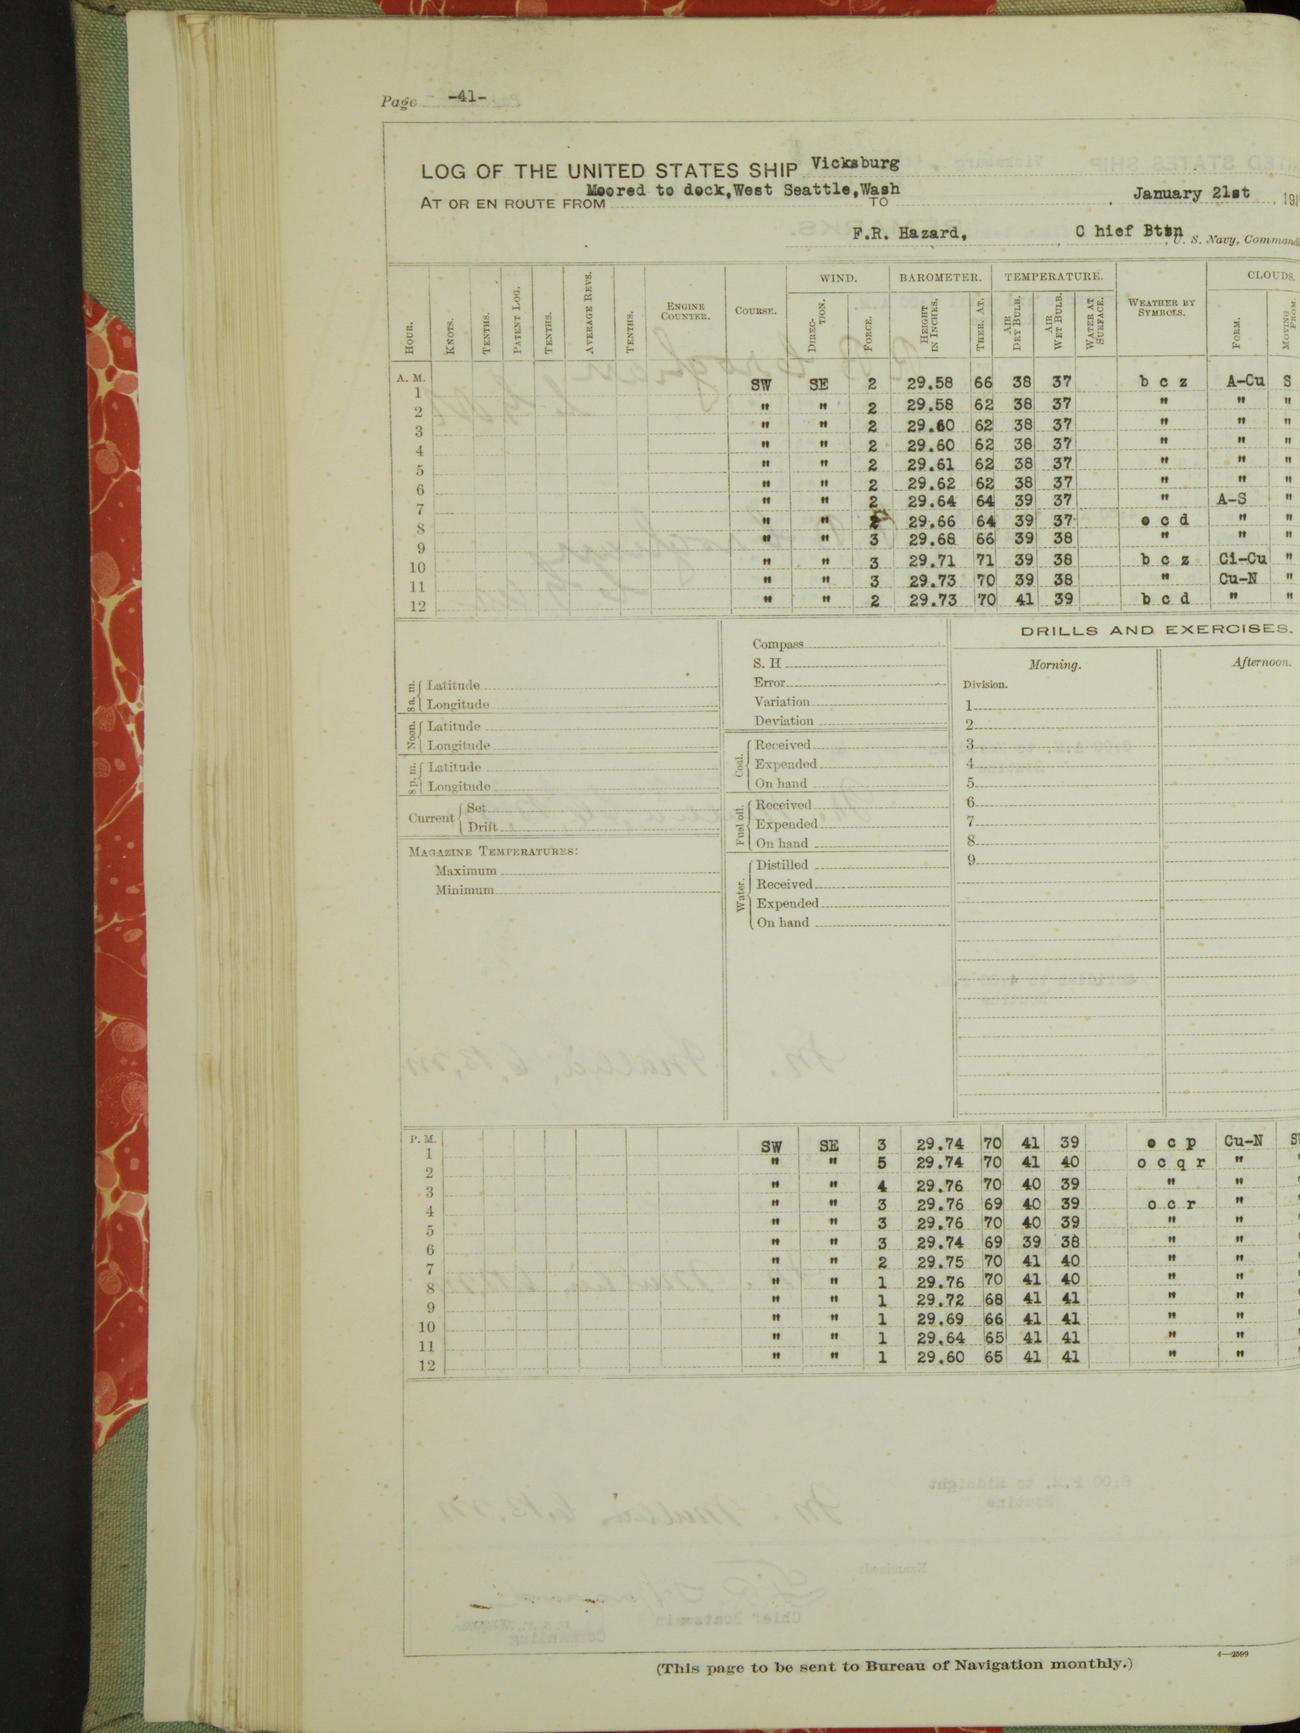 Page -41-
LOG OF THE UNITED STATES SHIP Vicksburg
Moored to dock,West Seattle,Wash
AT OR EN ROUTE FROM TO , January 21st , 191
F.R. Hazard, , C hief Btsn , U. S. Navy, Command
HOUR. KNOTS. TENTHS. PATENT LOG. TENTHS. AVERAGE REVS. TENTHS. ENGINE COUNTER. COURSE. WIND. DIRECTION. FORCE. BAROMETER. HEIGHT IN INCHES. THER. AT. TEMPERATURE. AIR DRY BULB. AIR WET BULB. WATER AT SURFACE. WEATHER BY SYMBOLS. CLOUDS. FORM. MOVING FROM.
A. M.
1 SW SE 2 29.58 66 38 37 b c z A-Cu S
2 " " 2 29.58 62 38 37 " " "
3 " " 2 29.60 62 38 37 " " "
4 " " 2 29.60 62 38 37 " " "
5 " " 2 29.61 62 38 37 " " "
6 " " 2 29.62 62 38 37 " " "
7 " " 2 29.64 64 39 37 " A-S "
8 " " 29.66 64 39 37 o c d " "
9 " " 3 29.68 66 39 38 " " "
10 " " 3 29.71 71 39 38 b c z Ci-Cu "
11 " " 3 29.73 70 39 38 " Cu-N "
12 " " 2 29.73 70 41 39 b c d " "
8 a. m. Latitude
Longitude
Noon. Latitude
Longitude
8 p. m. Latitude
Longitude
Current Set
Drift
MAGAZINE TEMPERATURES:
Maximum
Minimum
Compass
S. H
Error
Variation
Deviation
Coal. Received
Expended
On hand
Fuel oil. Received
Expended
On hand
Water. Distilled
Received
Expended
On hand
DRILLS AND EXERCISES.
Morning. Afternoon.
Division.
1
2
3
4
5
6
7
8
9
P. M.
1 SW SE 3 29.74 70 41 39 o c p Cu-N S
2 " " 5 29.74 70 41 40 o c q r "
3 " " 4 29.76 70 40 39 " "
4 " " 3 29.76 69 40 39 o c r "
5 " " 3 29.76 70 40 39 " "
6 " " 3 29.74 69 39 38 " "
7 " " 2 29.75 70 41 40 " "
8 " " 1 29.76 70 41 40 " "
9 " " 1 29.72 68 41 41 " "
10 " " 1 29.69 66 41 41 " "
11 " " 1 29.64 65 41 41 " "
12 " " 1 29.60 65 41 41 " "
(This page to be sent to Bureau of Navigation monthly.)
4—2599